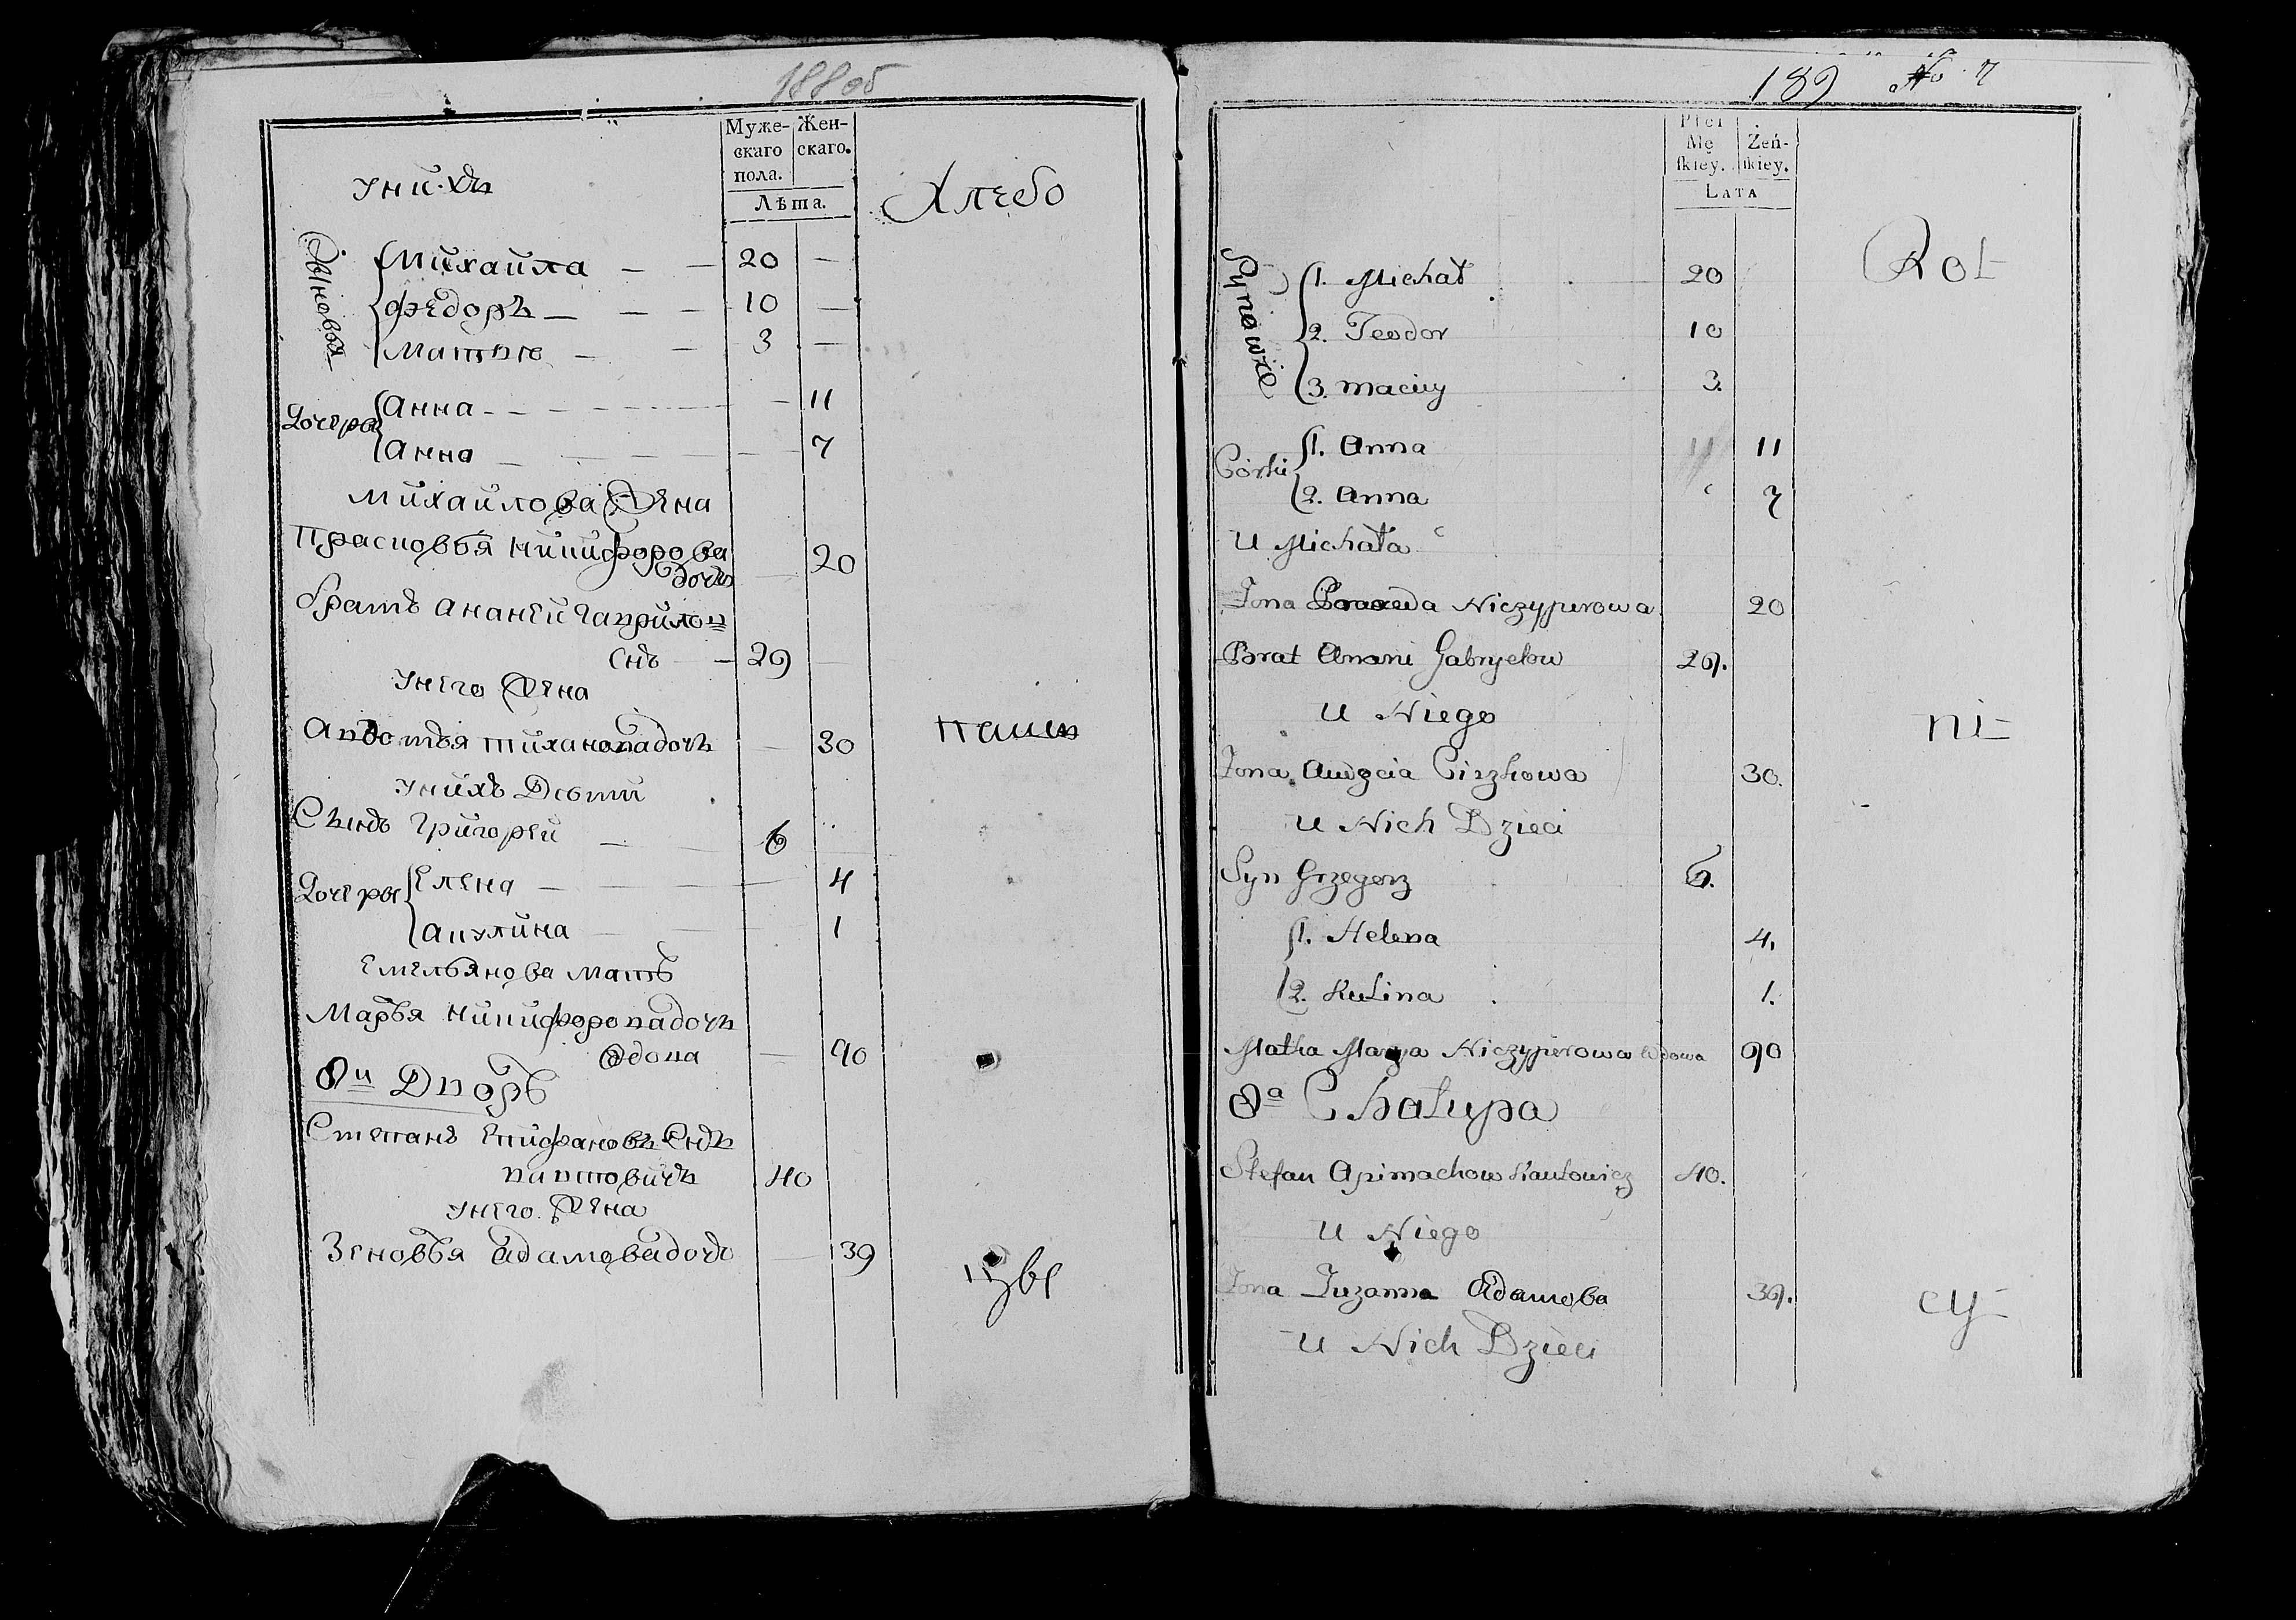 188 об
Муже-
скаго
пола.
Жен-
скаго.
Лѣта.
у них
Хлебо
Сыновья
Михайла — — 20 —
Федоръ — — — 10 —
Матвѣ — — 3 —
Дочери
Анна — — — — — 11
Анна — — — — — 7
Михайлова Жена
Прасковья Никифорова
дочь — 20
братъ Ананей Гаврилов
снъ — 29
у него Жена
Авдотья Тихановадочь — 30
паш
у нихъ Дѣти
Сынъ Григорей — — 6
Дочеры
Елена — — — — 4
Акулина — — 1
Емельянова мать
Марья Никифоровадочь
вдова — 90
8й Дворъ
Степанъ Епифановъ Снъ
40
у него Жена
Зеновья Адамовадочь — 39
189 No 7
Płci
Mę
ſkiey.
Żeń-
ſkiey.
LATA
Rol-
Synowie
1. Michał 20
2. Teodor 10
3. Maciey 3.
Córki
1. Anna 11 11
2. Anna 7
U Michała
Żona Praxeda Niczyperowa 20
Brat Anani Gabryelow 29.
U Niego
ni-
Żona Awdocia Ciszkowa 30.
U Nich Dzieci
Syn Grzegorz 6.
1. Helena 4.
2. Kulina 1.
Matka Marya Niczyperowa Wdowa 90
8a Chałupa
Stefan Apimachow Kautowicz 40.
U Niego
Żona Zuzanna Адамова 39.
cy-
U Nich Dzieci